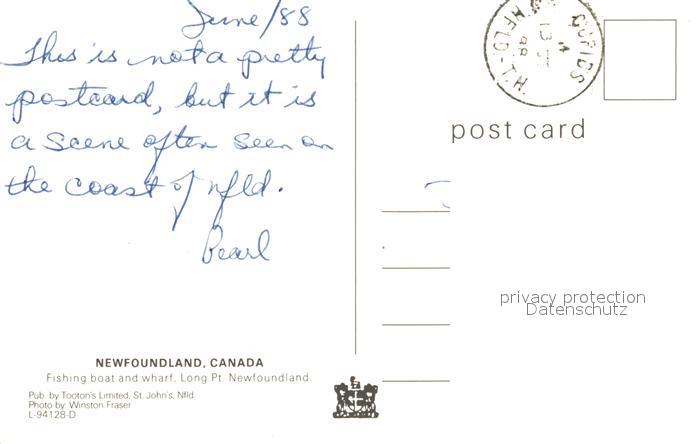 June/88
This is not a pretty
postcard, but it is
a scene often seen on
the coast of nfld.
Pearl
NEWFOUNDLAND, CANADA
Fishing boat and wharf, Long Pt. Newfoundland.
Pub. by Tooton's Limited, St. John's, Nfld.
Photo by: Winston Fraser
L-94128-D
CUPIDS
NFLD.-T.N.
88
post card
privacy protection
Datenschutz